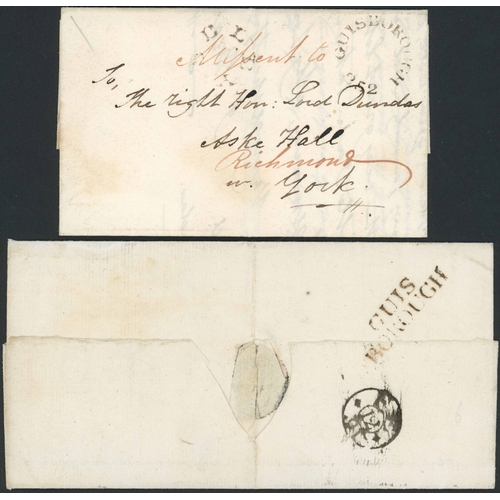 GUISBOROUGH
252
Missent to
To,
The right Hon: Lord Dundas
Aske Hall
Richmond
n. York.
GUIS
BOROUGH